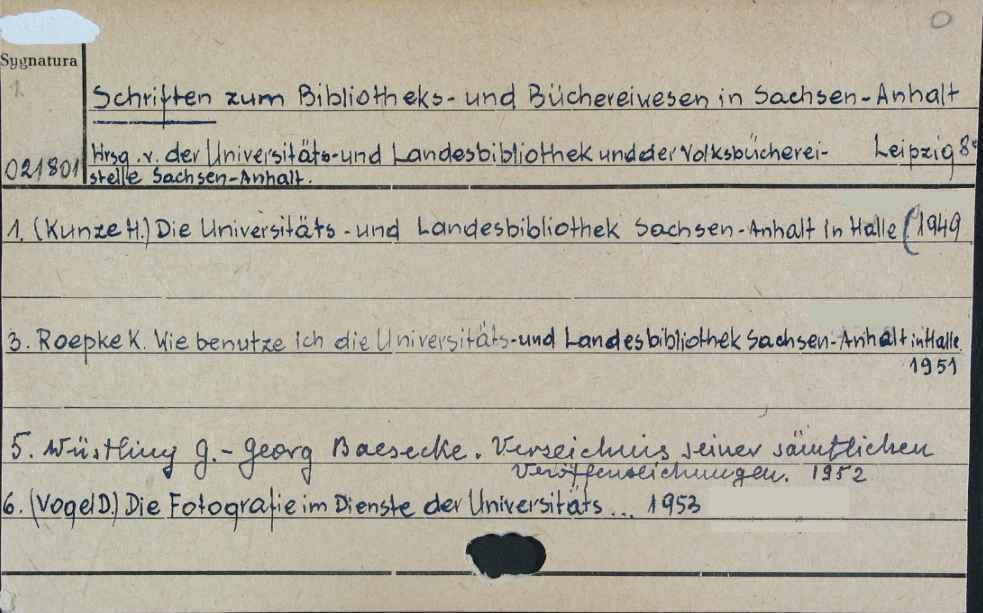 O
Sygnatura
1.
Schriften zum Bibliotheks- und Büchereiwesen in Sachsen-Anhalt
021801
Hrsg. v. der Universitäts-und Landesbibliothek und der Volksbücherei- Leipzig 8°
stelle Sachsen-Anhalt.
1. (Kunze H.) Die Universitäts-und Landesbibliothek Sachsen-Anhalt in Halle (1949
3. Roepke K. Wie benutze ich die Universitäts-und Landesbibliothek Sachsen-Anhalt in Halle
1951
5. Wüstling G.- Georg Baesecke. Verzeichnis seiner sämtlichen
Veröffentlichungen. 1952
6. (Vogel D.) Die Fotografie im Dienste der Universitäts... 1953